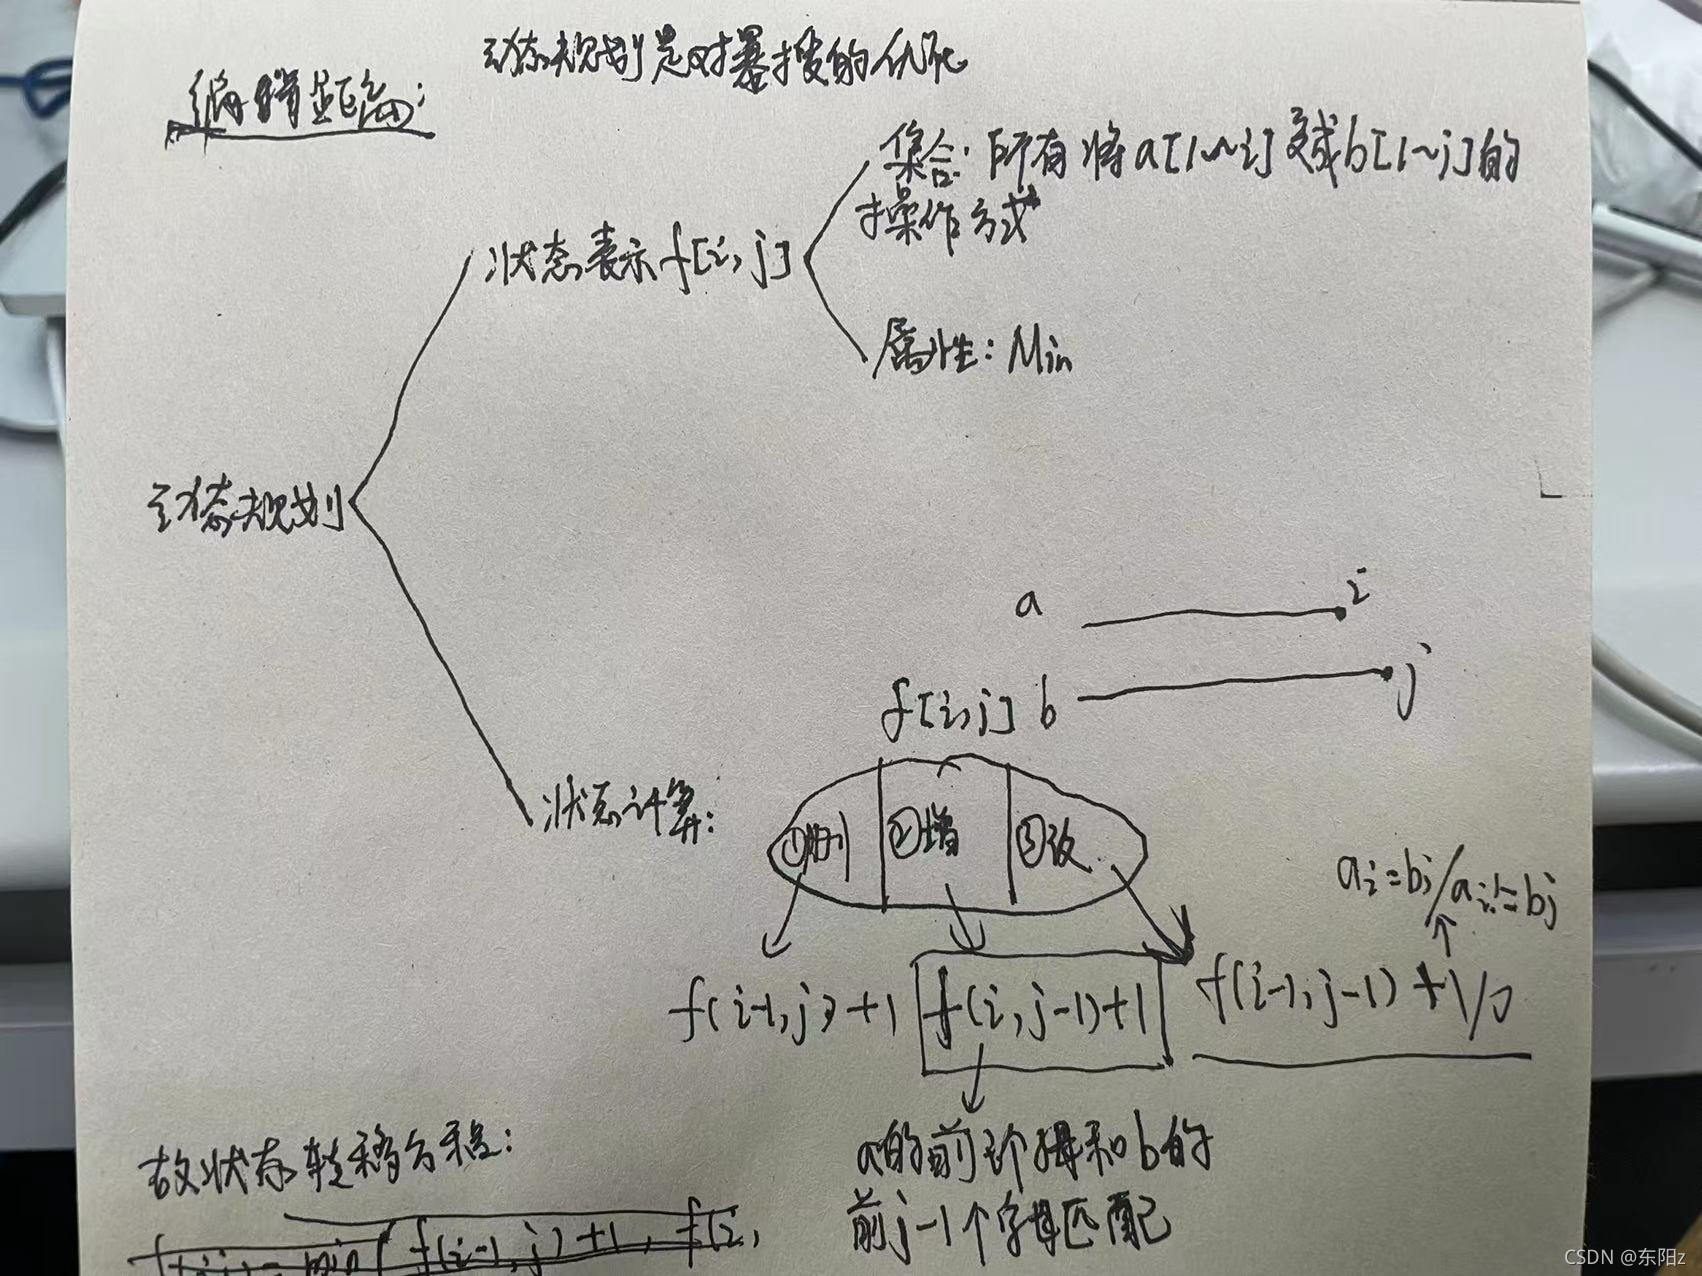 动态规划是对暴搜的优化
编辑距离:
集合:所有将a[1~i]变成b[1~j]的
操作方式
状态表示f[i,j]
属性:Min
动态规划
a i
f[i,j] b j
状态计算:
①删 ②增 ③改
ai=bj/ai!=bj
f(i-1,j)+1 f(i,j-1)+1 f(i-1,j-1)+1/0
故状态转移方程:
a的前i个字母和b的
前j-1个字母匹配
min f(i-1,j)+1, f(i,
CSDN @东阳z